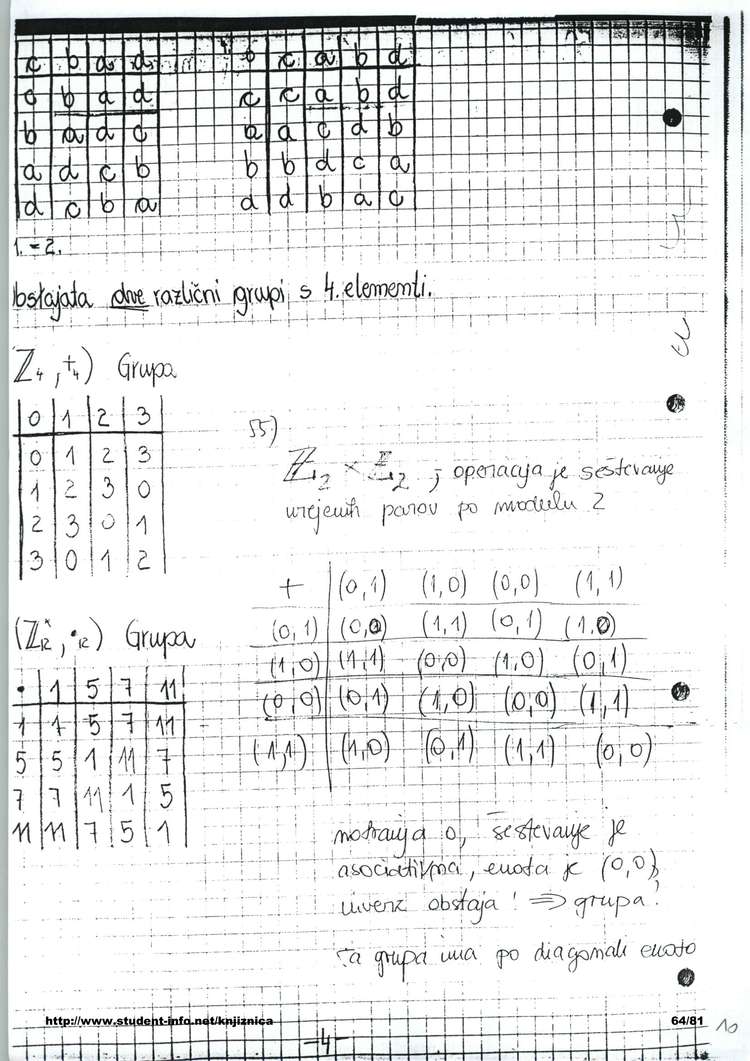 c b a d
c b a d
b a d c
a d c b
d c b a
1. = 2.
o c a b d
c c a b d
a a c d b
b b d c a
d d b a c
obstajata dve različni grupi s 4. elementi.
Z₄, +₄) Grupa
0 1 2 3
0 1 2 3
1 2 3 0
2 3 0 1
3 0 1 2
(Z₁₂*, •₁₂) Grupa
• 1 5 7 11
1 1 5 7 11
5 5 1 11 7
7 7 11 1 5
11 11 7 5 1
55)
Z₂ × Z₂ ; operacija je seštevanje
urejenih parov po modulu 2
+ (0,1) (1,0) (0,0) (1,1)
(0,1) (0,0) (1,1) (0,1) (1,0)
(1,0) (1,1) (0,0) (1,0) (0,1)
(0,0) (0,1) (1,0) (0,0) (1,1)
(1,1) (1,0) (0,1) (1,1) (0,0)
notranja o, seštevanje je
asociativna, enota je (0,0),
inverz obstaja! ⇒ grupa!
ta grupa ima po diagonali enoto
http://www.student-info.net/knjiznica
64/81
10
-4-